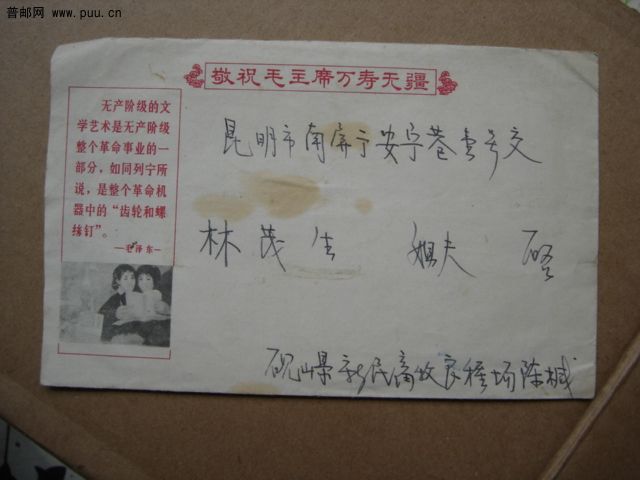 普邮网 www.puu.cn
敬祝毛主席万寿无疆
无产阶级的文
学艺术是无产阶级
整个革命事业的一
部分，如同列宁所
说，是整个革命机
器中的“齿轮和螺
丝钉”。
—毛泽东—
昆明市南屏宁安宁巷壹号交
林茂生 姐夫 启
砚山县新民畜牧良种场陈械